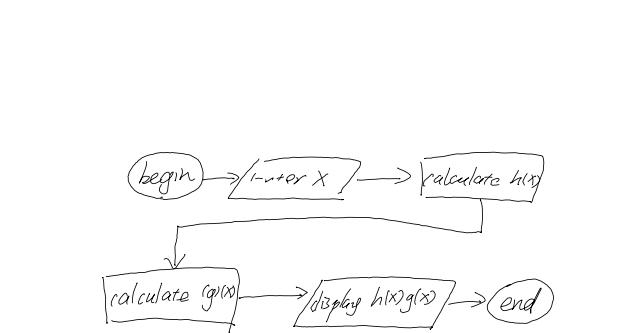 begin
inter X
calculate h(x)
calculate (g)(x)
display h(x)g(x)
end